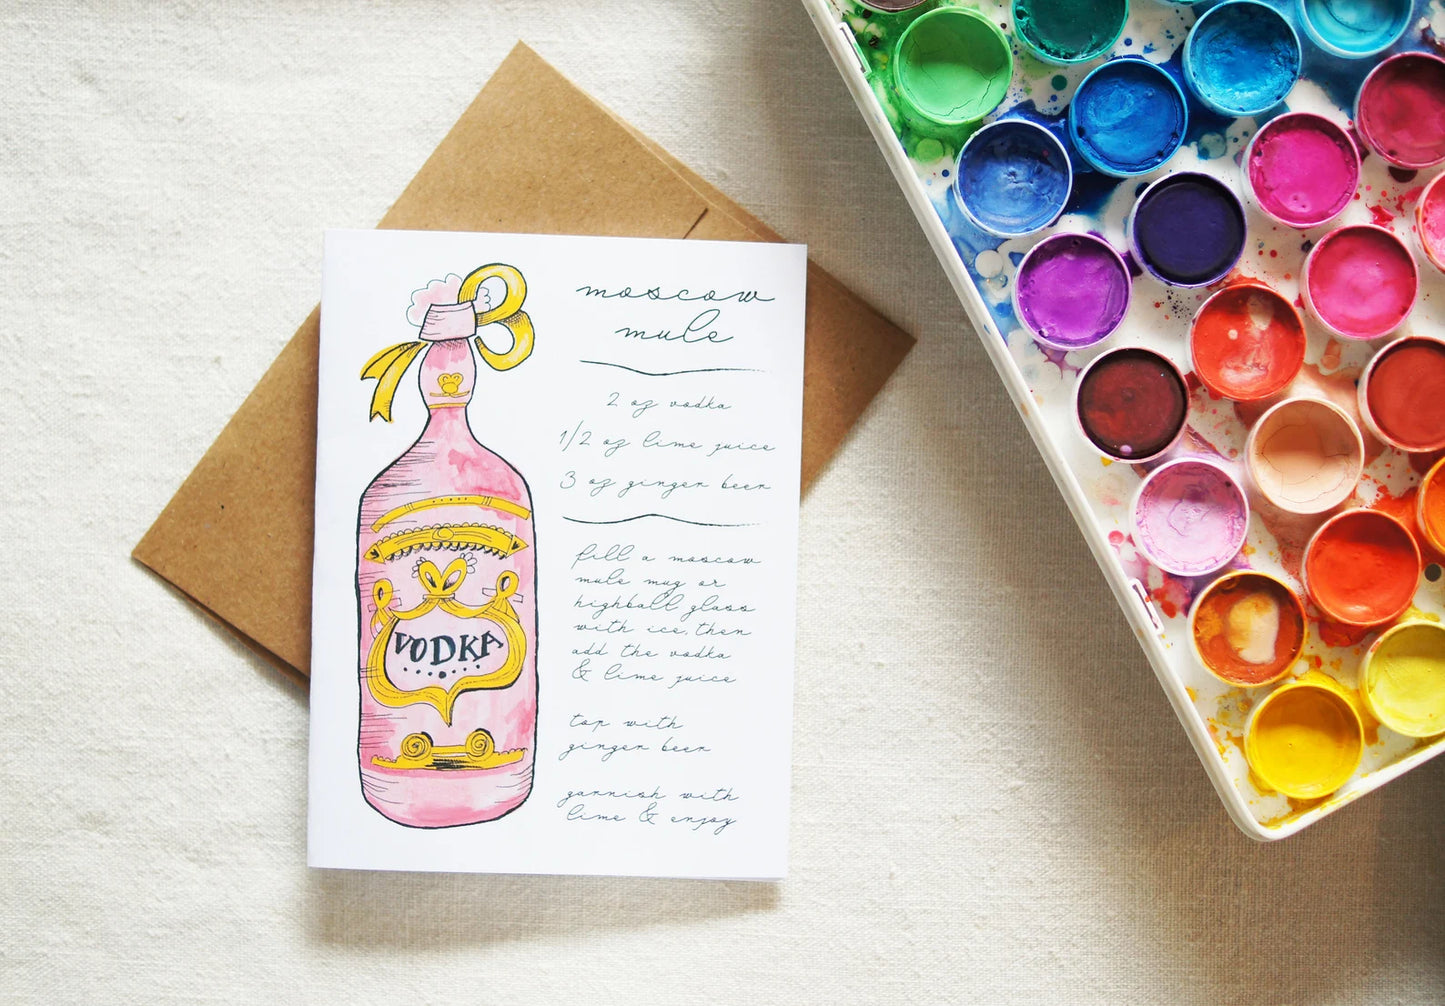 moscow
mule
2 oz vodka
1/2 oz lime juice
3 oz ginger beer
fill a moscow
mule mug or
highball glass
with ice, then
add the vodka
& lime juice
top with
ginger beer
garnish with
lime & enjoy
VODKA